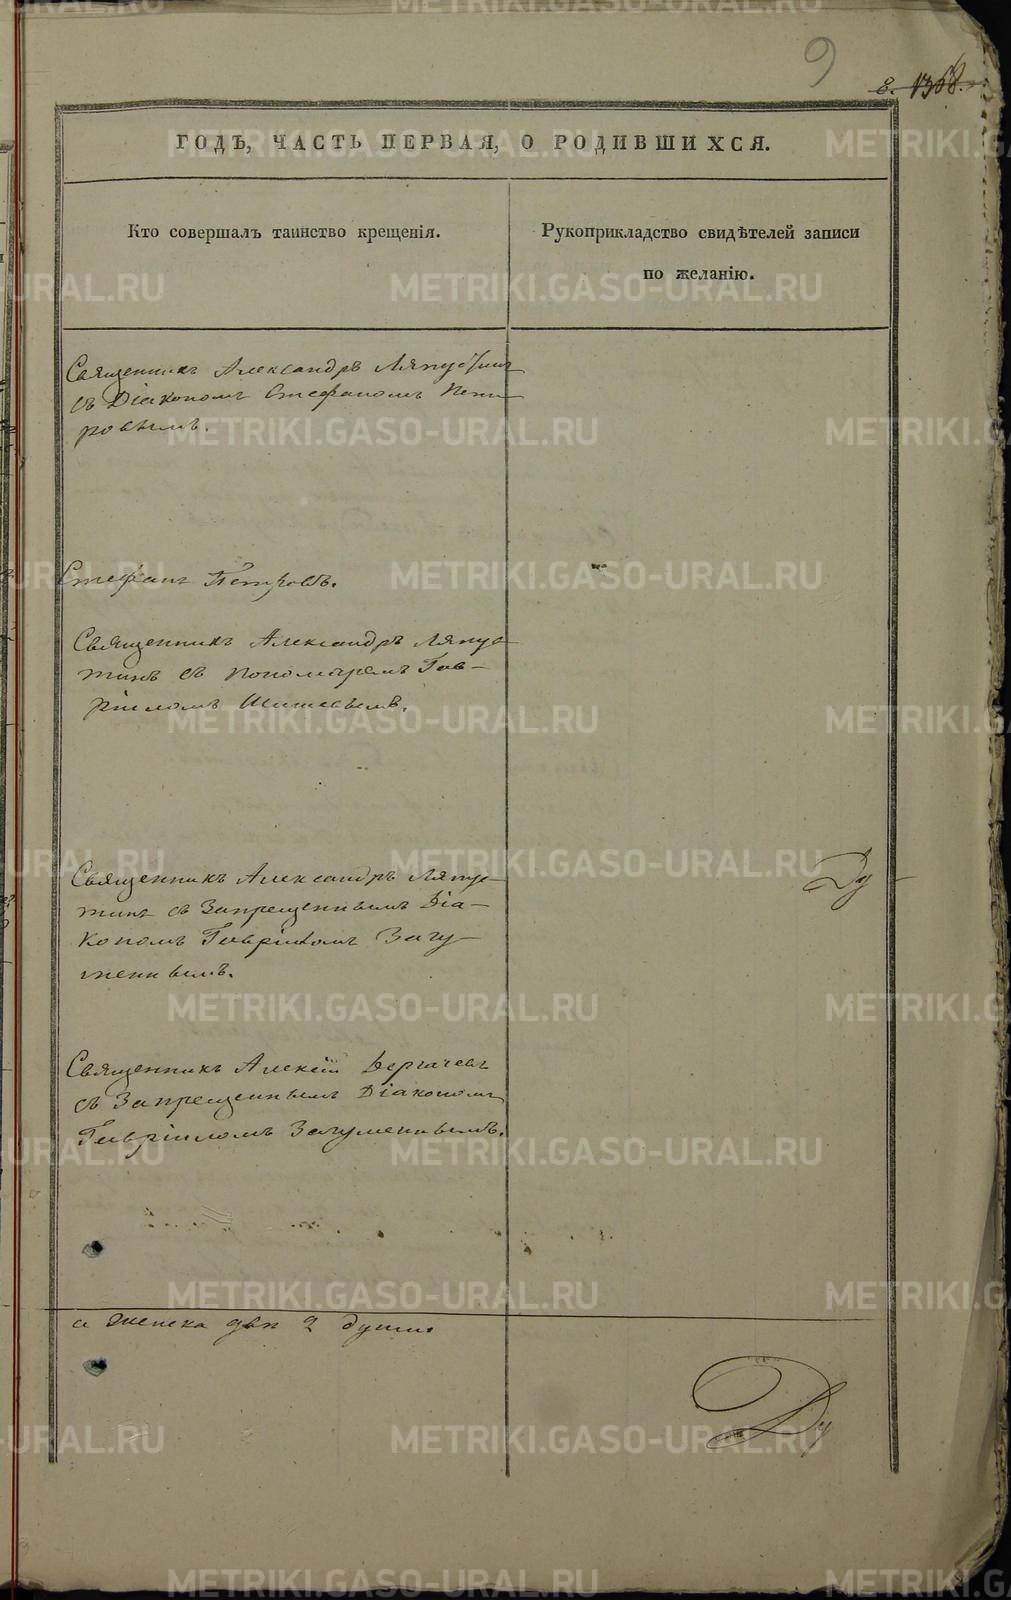 9
8. 1368.
ГОДЪ, ЧАСТЬ ПЕРВАЯ, О РОДИВШИХСЯ.
Кто совершалъ таинство крещенія.
Рукоприкладство свидѣтелей записи
по желанію.
Священникъ Александръ Ляпустинъ
съ Діакономъ Стефаномъ Пет-
ровымъ.
Стефанъ Петровъ.
Священникъ Александръ Ляпус-
тинъ съ Пономаремъ Гав-
ріиломъ
Священникъ Александръ Ляпус-
тинъ съ Запрещеннымъ Діа-
кономъ Гавріиломъ Загу-
меннымъ.
Ду
Священникъ Алексій Дергачевъ
съ Запрещеннымъ Діакономъ
Гавріиломъ Загуменнымъ.
а женска двѣ 2 души.
Ду
METRIKI.GASO-URAL.RU